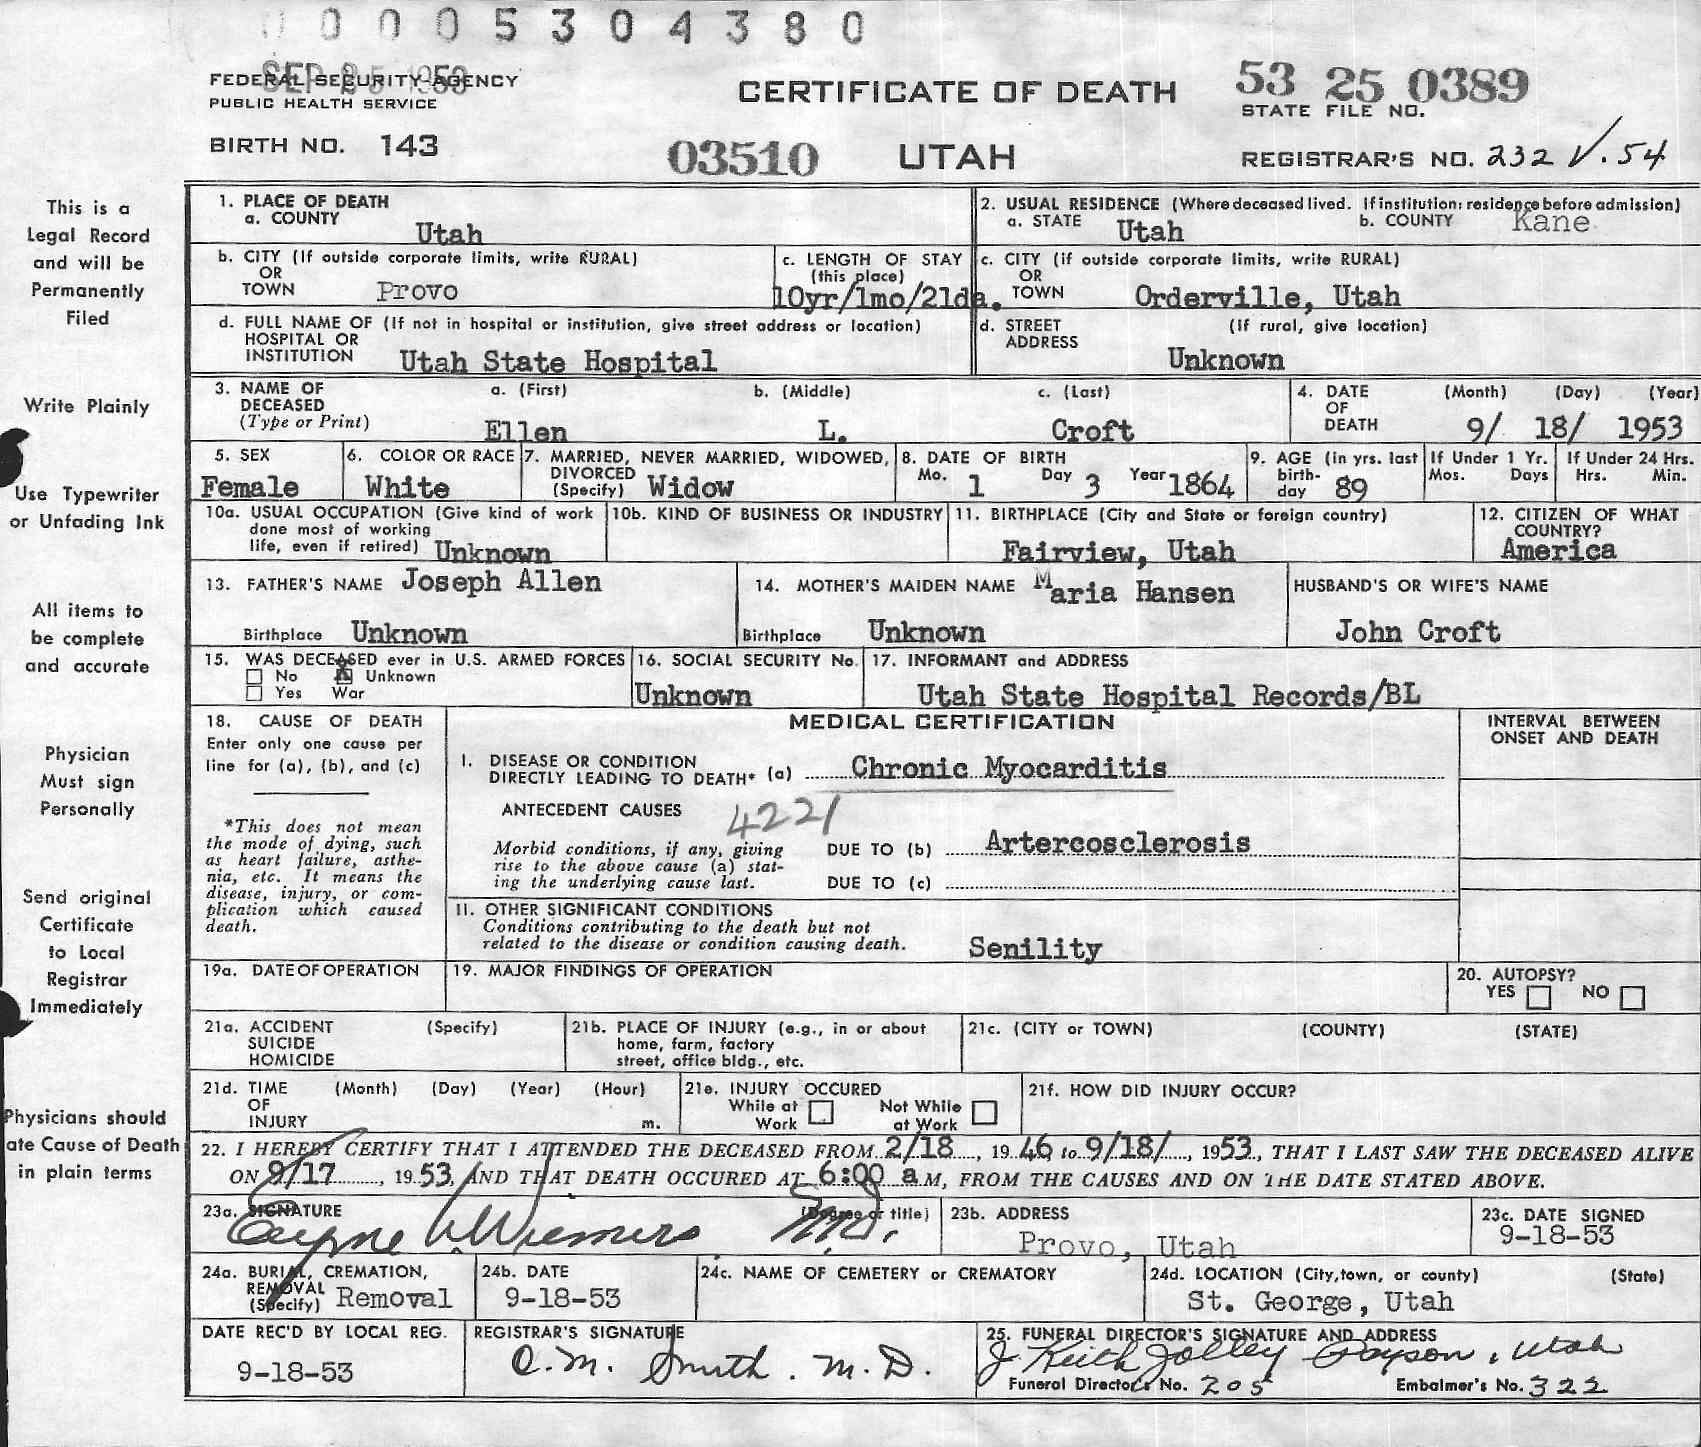 0 0 0 0 5 3 0 4 3 8 0
FEDERAL SECURITY AGENCY
SEP 25 1953
PUBLIC HEALTH SERVICE
BIRTH NO. 143
CERTIFICATE OF DEATH
03510 UTAH
53 25 0389
STATE FILE NO.
REGISTRAR'S NO. 232 V.54
This is a
Legal Record
and will be
Permanently
Filed
Write Plainly
Use Typewriter
or Unfading Ink
All items to
be complete
and accurate
Physician
Must sign
Personally
Send original
Certificate
to Local
Registrar
Immediately
Physicians should
ate Cause of Death
in plain terms
1. PLACE OF DEATH
a. COUNTY Utah
2. USUAL RESIDENCE (Where deceased lived. If institution: residence before admission)
a. STATE Utah b. COUNTY Kane
b. CITY (If outside corporate limits, write RURAL)
OR
TOWN Provo
c. LENGTH OF STAY
(this place)
10yr/1mo/21da.
c. CITY (if outside corporate limits, write RURAL)
OR
TOWN Orderville, Utah
d. FULL NAME OF (If not in hospital or institution, give street address or location)
HOSPITAL OR
INSTITUTION Utah State Hospital
d. STREET (If rural, give location)
ADDRESS
Unknown
3. NAME OF a. (First) b. (Middle) c. (Last)
DECEASED
(Type or Print) Ellen L. Croft
4. DATE (Month) (Day) (Year)
OF
DEATH 9/ 18/ 1953
5. SEX
Female
6. COLOR OR RACE
White
7. MARRIED, NEVER MARRIED, WIDOWED,
DIVORCED
(Specify) Widow
8. DATE OF BIRTH
Mo. 1 Day 3 Year 1864
9. AGE (in yrs. last
birth-
day 89
If Under 1 Yr.
Mos. Days
If Under 24 Hrs.
Hrs. Min.
10a. USUAL OCCUPATION (Give kind of work
done most of working
life, even if retired) Unknown
10b. KIND OF BUSINESS OR INDUSTRY
11. BIRTHPLACE (City and State or foreign country)
Fairview, Utah
12. CITIZEN OF WHAT
COUNTRY?
America
13. FATHER'S NAME Joseph Allen
Birthplace Unknown
14. MOTHER'S MAIDEN NAME Maria Hansen
Birthplace Unknown
HUSBAND'S OR WIFE'S NAME
John Croft
15. WAS DECEASED ever in U.S. ARMED FORCES
No X Unknown
Yes War
16. SOCIAL SECURITY No.
Unknown
17. INFORMANT and ADDRESS
Utah State Hospital Records/BL
18. CAUSE OF DEATH
Enter only one cause per
line for (a), (b), and (c)
*This does not mean
the mode of dying, such
as heart failure, asthe-
nia, etc. It means the
disease, injury, or com-
plication which caused
death.
MEDICAL CERTIFICATION
INTERVAL BETWEEN
ONSET AND DEATH
I. DISEASE OR CONDITION
DIRECTLY LEADING TO DEATH* (a) Chronic Myocarditis
ANTECEDENT CAUSES 4221
Morbid conditions, if any, giving
rise to the above cause (a) stat-
ing the underlying cause last.
DUE TO (b) Artercosclerosis
DUE TO (c)
II. OTHER SIGNIFICANT CONDITIONS
Conditions contributing to the death but not
related to the disease or condition causing death. Senility
19a. DATE OF OPERATION
19. MAJOR FINDINGS OF OPERATION
20. AUTOPSY?
YES NO
21a. ACCIDENT (Specify)
SUICIDE
HOMICIDE
21b. PLACE OF INJURY (e.g., in or about
home, farm, factory
street, office bldg., etc.
21c. (CITY or TOWN) (COUNTY) (STATE)
21d. TIME (Month) (Day) (Year) (Hour)
OF
INJURY m.
21e. INJURY OCCURED
While at Not While
Work at Work
21f. HOW DID INJURY OCCUR?
22. I HEREBY CERTIFY THAT I ATTENDED THE DECEASED FROM 2/18, 1946, to 9/18/, 1953, THAT I LAST SAW THE DECEASED ALIVE
ON 9/17, 1953, AND THAT DEATH OCCURED AT 6:00 a M, FROM THE CAUSES AND ON THE DATE STATED ABOVE.
23a. SIGNATURE (Degree or title)
M.D.
23b. ADDRESS
Provo, Utah
23c. DATE SIGNED
9-18-53
24a. BURIAL, CREMATION,
REMOVAL
(Specify) Removal
24b. DATE
9-18-53
24c. NAME OF CEMETERY or CREMATORY
24d. LOCATION (City, town, or county) (State)
St. George, Utah
DATE REC'D BY LOCAL REG.
9-18-53
REGISTRAR'S SIGNATURE
C.M. Smith. M.D.
25. FUNERAL DIRECTOR'S SIGNATURE AND ADDRESS
J. Keith Jolley Payson, Utah
Funeral Director's No. 205 Embalmer's No. 322